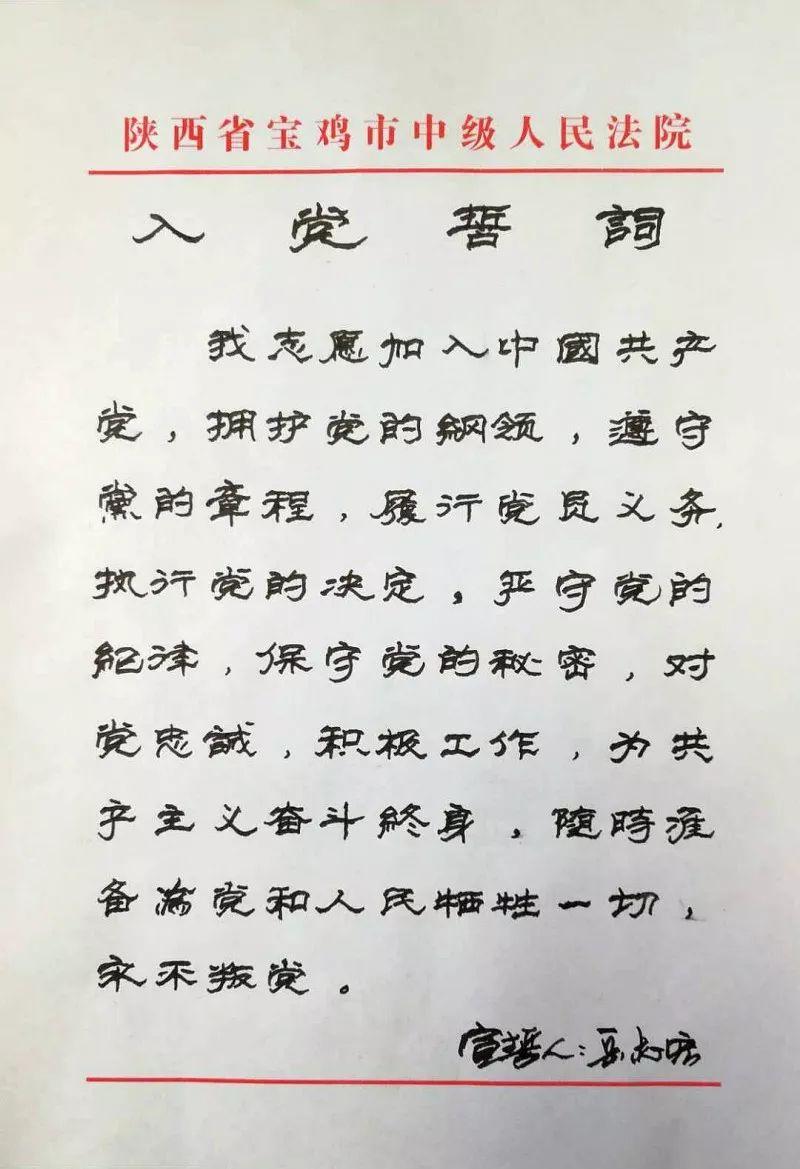 陕西省宝鸡市中级人民法院
入党誓詞
我志愿加入中國共产
党，拥护党的綱领，遵守
黨的章程，履行党员义务，
执行党的决定。严守党的
紀律，保守党的秘密，对
党忠誠，积极工作，为共
产主义奋斗終身，随時准
备为党和人民牺牲一切，
永不叛党。
宣誓人：